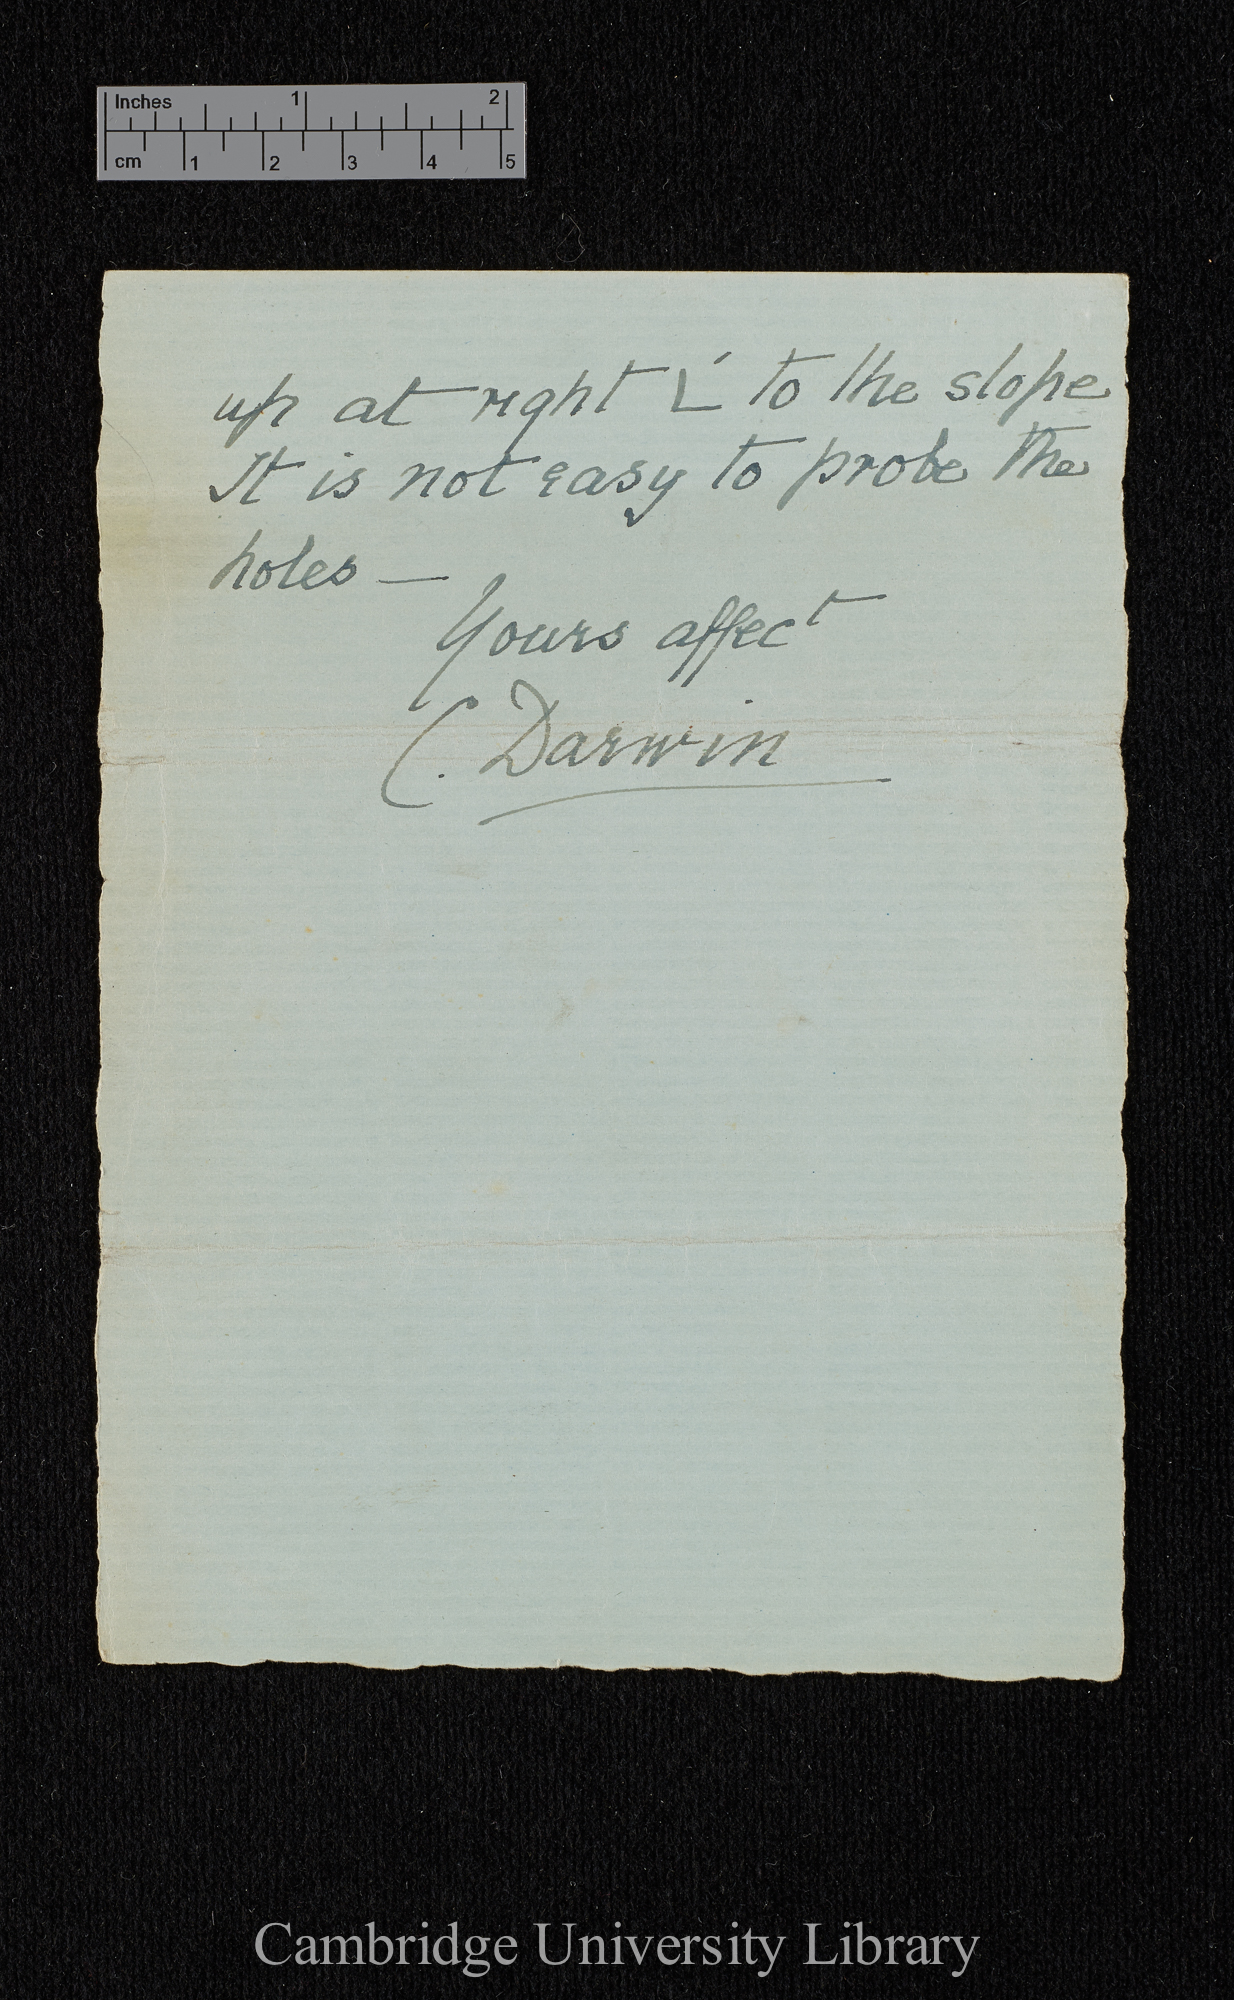 Inches 1 2
cm 1 2 3 4 5
up at right ∟́ to the slope
It is not easy to probe the
holes —
Yours affect
C. Darwin
Cambridge University Library